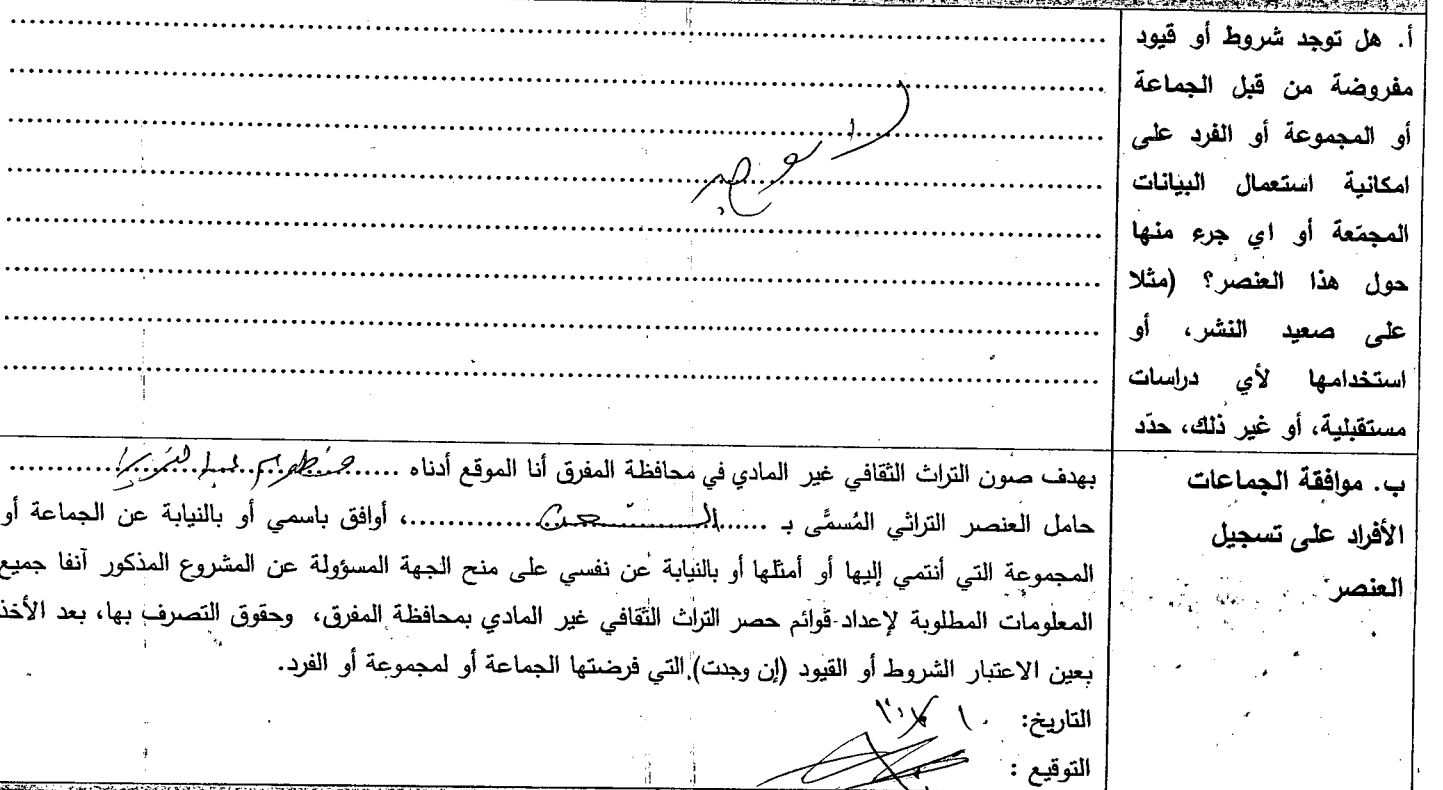 أ. هل توجد شروط أو قيود
مفروضة من قبل الجماعة
أو المجموعة أو الفرد على
امكانية استعمال البيانات
المجمّعة أو اي جرء منها
حول هذا العنصر؟ (مثلا
على صعيد النشر، أو
استخدامها لأي دراسات
مستقبلية، أو غير ذلك، حدّد
لا يوجد
ب. موافقة الجماعات
الأفراد على تسجيل
العنصر
بهدف صون التراث الثقافي غير المادي في محافظة المفرق أنا الموقع أدناه
حامل العنصر التراثي المُسمَّى بـ ......السعن......، أوافق باسمي أو بالنيابة عن الجماعة أو
المجموعة التي أنتمي إليها أو أمثلها أو بالنيابة عن نفسي على منح الجهة المسؤولة عن المشروع المذكور آنفا جميع
المعلومات المطلوبة لإعداد قوائم حصر التراث الثقافي غير المادي بمحافظة المفرق، وحقوق التصرف بها، بعد الأخذ
بعين الاعتبار الشروط أو القيود (إن وجدت) التي فرضتها الجماعة أو لمجموعة أو الفرد.
التاريخ:
التوقيع :